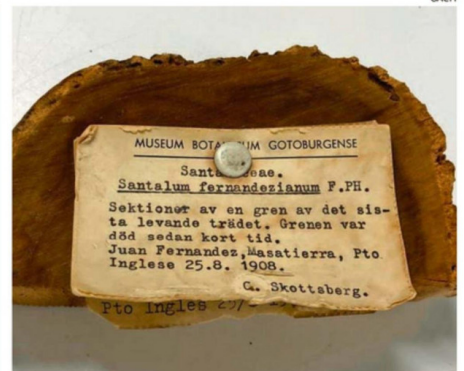 MUSEUM BOTANICUM GOTOBURGENSE
Santalaceae.
Santalum fernandezianum F.PH.
Sektioner av en gren av det sis-
ta levande trädet. Grenen var
död sedan kort tid.
Juan Fernandez,Masatierra, Pto.
Inglese 25.8. 1908.
C. Skottsberg.
Pto Ingles